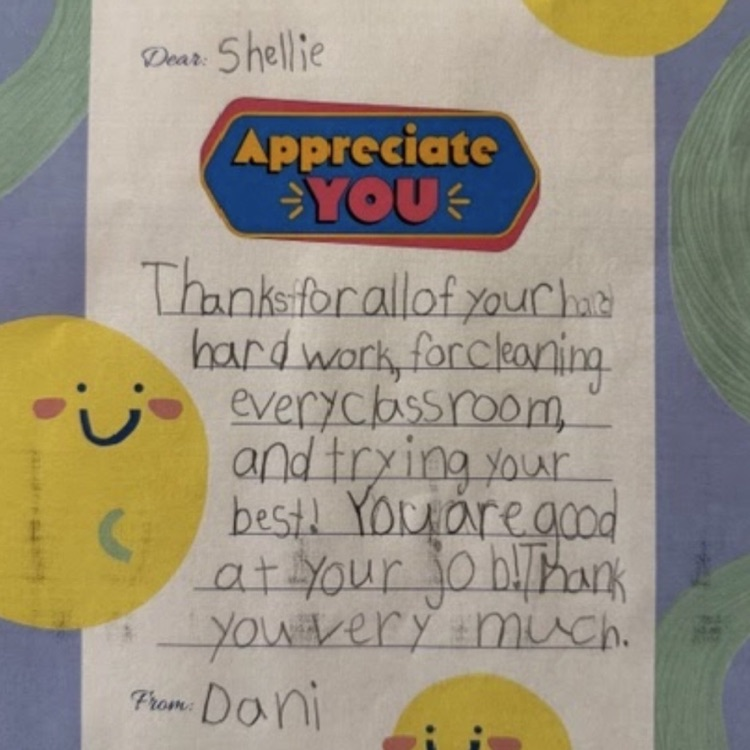 Dear: Shellie
Appreciate
YOU
Thanks for all of your hard
hard work, for cleaning
every classroom,
and trying your
best! You are good
at your job! Thank
you very much.
From: Dani